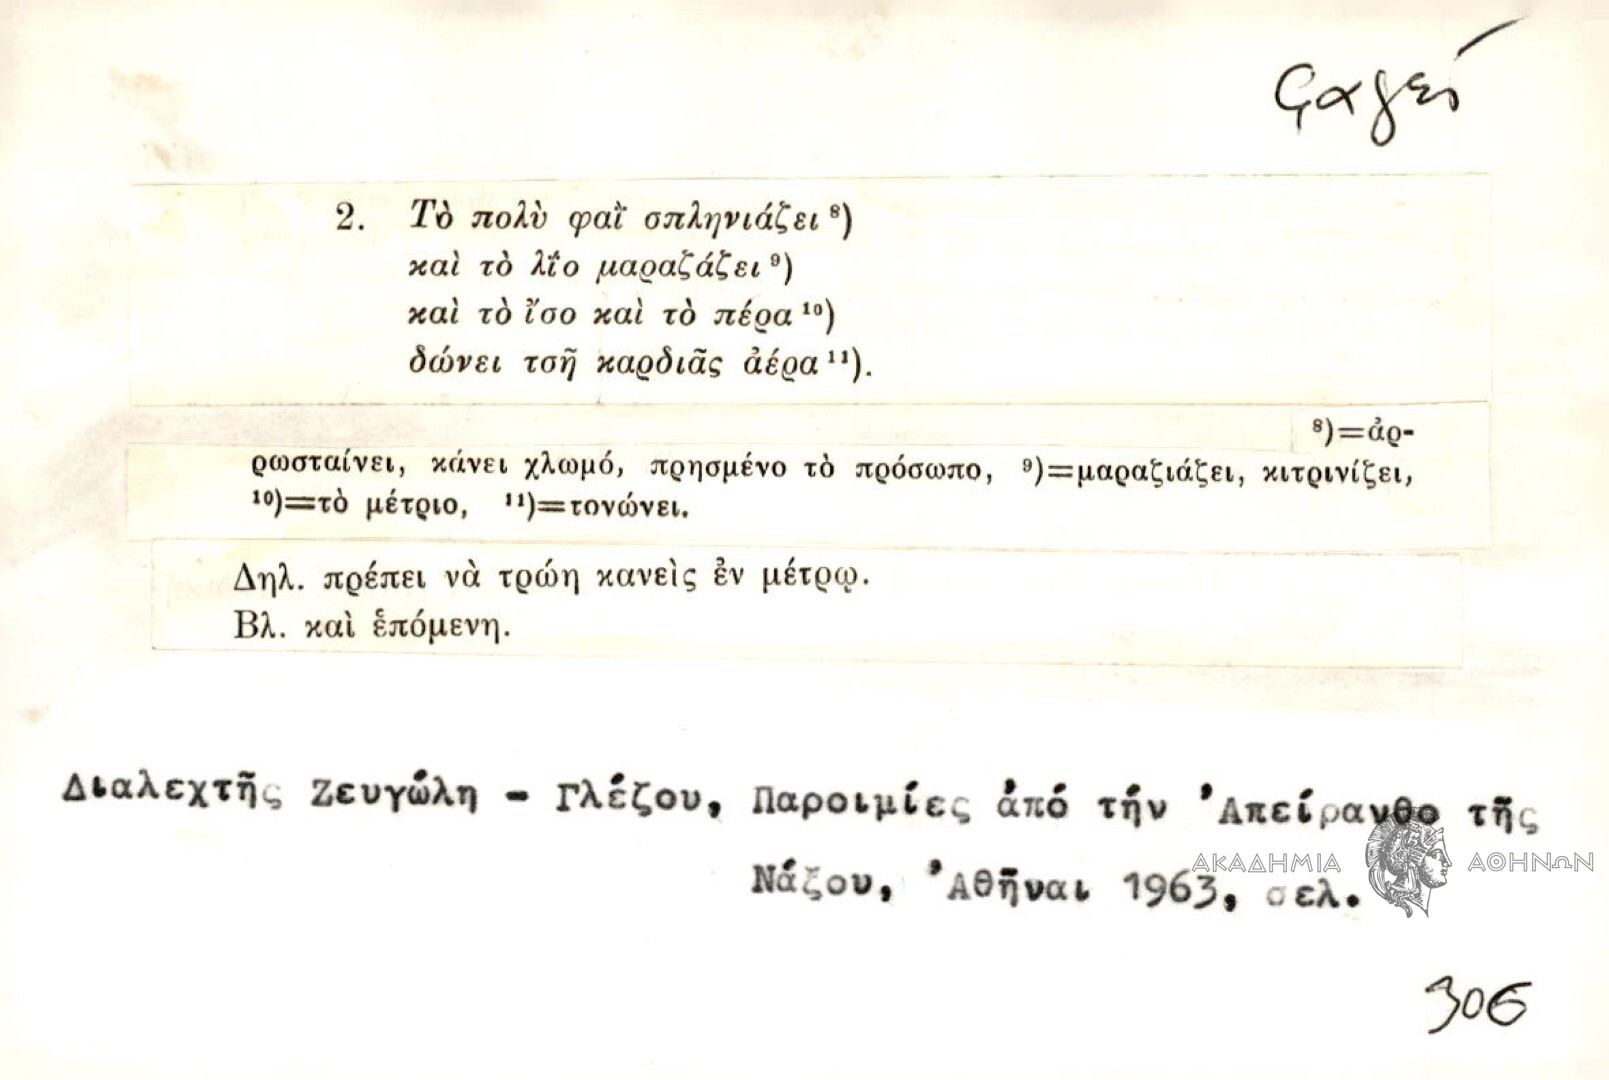 φαγεί
2. Τὸ πολὺ φαῒ σπληνιάζει ⁸)
καὶ τὸ λΐο μαραζάζει ⁹)
καὶ τὸ ἴσο καὶ τὸ πέρα ¹⁰)
δώνει τσῆ καρδιᾶς ἀέρα ¹¹).
⁸)=ἀρ-
ρωσταίνει, κάνει χλωμό, πρησμένο τὸ πρόσωπο, ⁹)=μαραζιάζει, κιτρινίζει,
¹⁰)=τὸ μέτριο, ¹¹)=τονώνει.
Δηλ. πρέπει νὰ τρώη κανεὶς ἐν μέτρῳ.
Βλ. καὶ ἑπόμενη.
Διαλεχτῆς Ζευγώλη - Γλέζου, Παροιμίες ἀπό τήν Ἀπείρανθο τῆς
Νάξου, Ἀθῆναι 1963, σελ.
ΑΚΑΔΗΜΙΑ ΑΘΗΝΩΝ
306